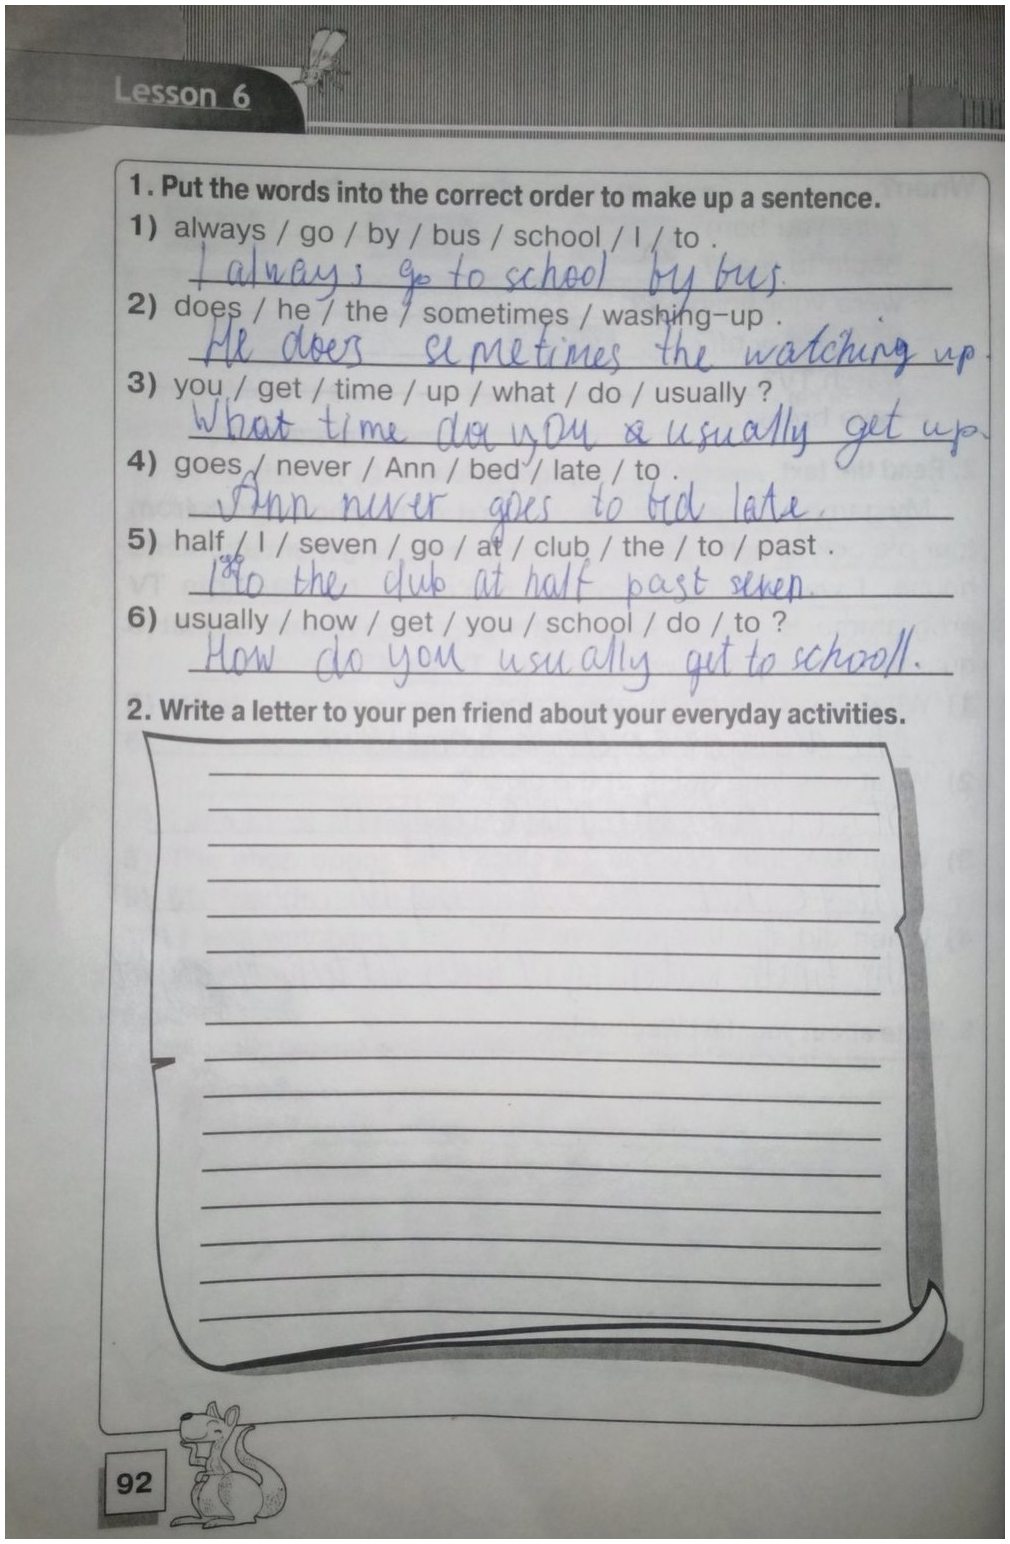 Lesson 6
1. Put the words into the correct order to make up a sentence.
1) always / go / by / bus / school / I / to .
I always go to school by bus.
2) does / he / the / sometimes / washing-up .
He does semetimes the watching up.
3) you / get / time / up / what / do / usually ?
What time do you usually get up.
4) goes / never / Ann / bed / late / to .
Ann never goes to bed late.
5) half / I / seven / go / at / club / the / to / past .
I go to the club at half past seven.
6) usually / how / get / you / school / do / to ?
How do you usually get to schooll.
2. Write a letter to your pen friend about your everyday activities.
92